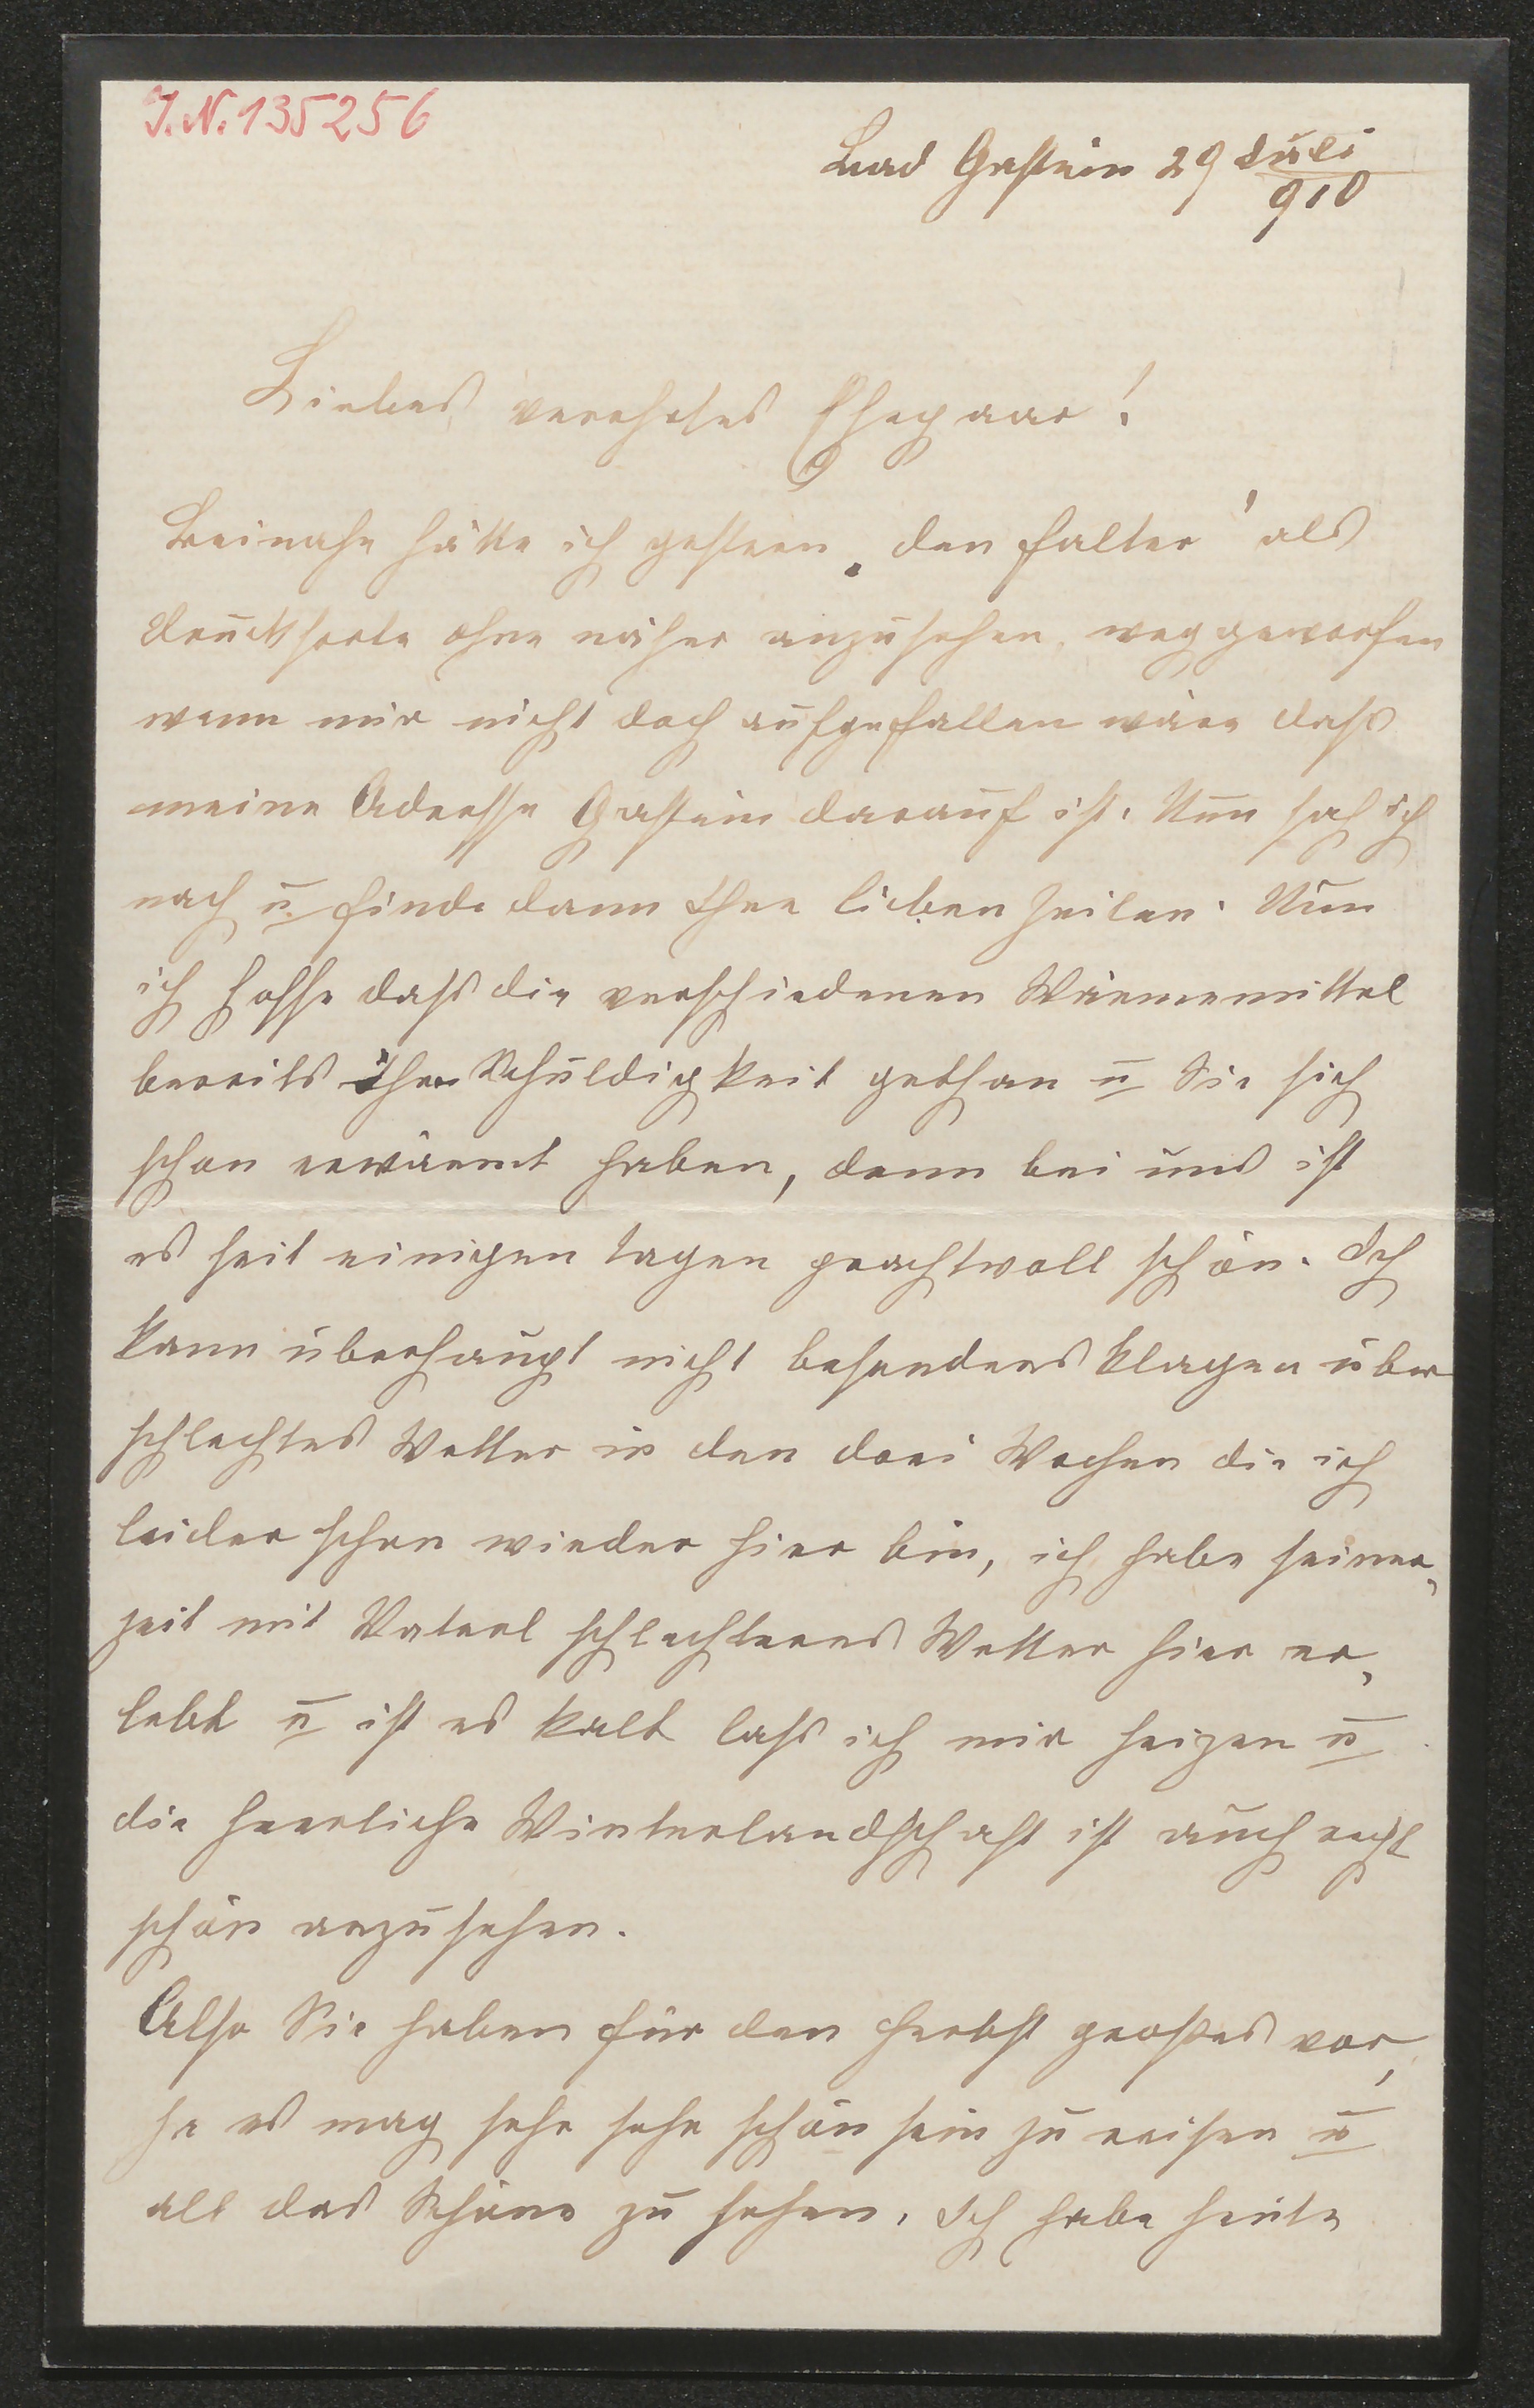 I.N. 135256
Bad Gastein 29 Juli
910
Liebes verehrtes Ehepaar!
Beinahe hätte ich gestern „den Falter" als
Drucksorte ohne näher anzusehen weggeworfen
wenn mir nicht doch aufgefallen wäre dass
meine Adresse Gastein darauf ist. Nun sah ich
nach u finde dann Ihre lieben Zeilen. Nun
ich hoffe dass die verschiedenen Wärmemittel
bereits ihre Schuldigkeit gethan u Sie sich
schon erwärmt haben, denn bei uns ist
es seit einigen Tagen prachtvoll schön. Ich
kann überhaupt nicht besonders klagen über
schlechtes Wetter in den drei Wochen die ich
leider schon wieder hier bin, ich habe seiner„
zeit mit Vaterl schlechteres Wetter hier er„
lebt u ist es kalt lass ich mir heizen u
die herrliche Winterlandschaft ist auch recht
schön anzusehen.
Also Sie haben für den Herbst großes vor,
ja es mag sehr sehr schön sein zu reisen u
all das Schöne zu sehen. Ich habe heute